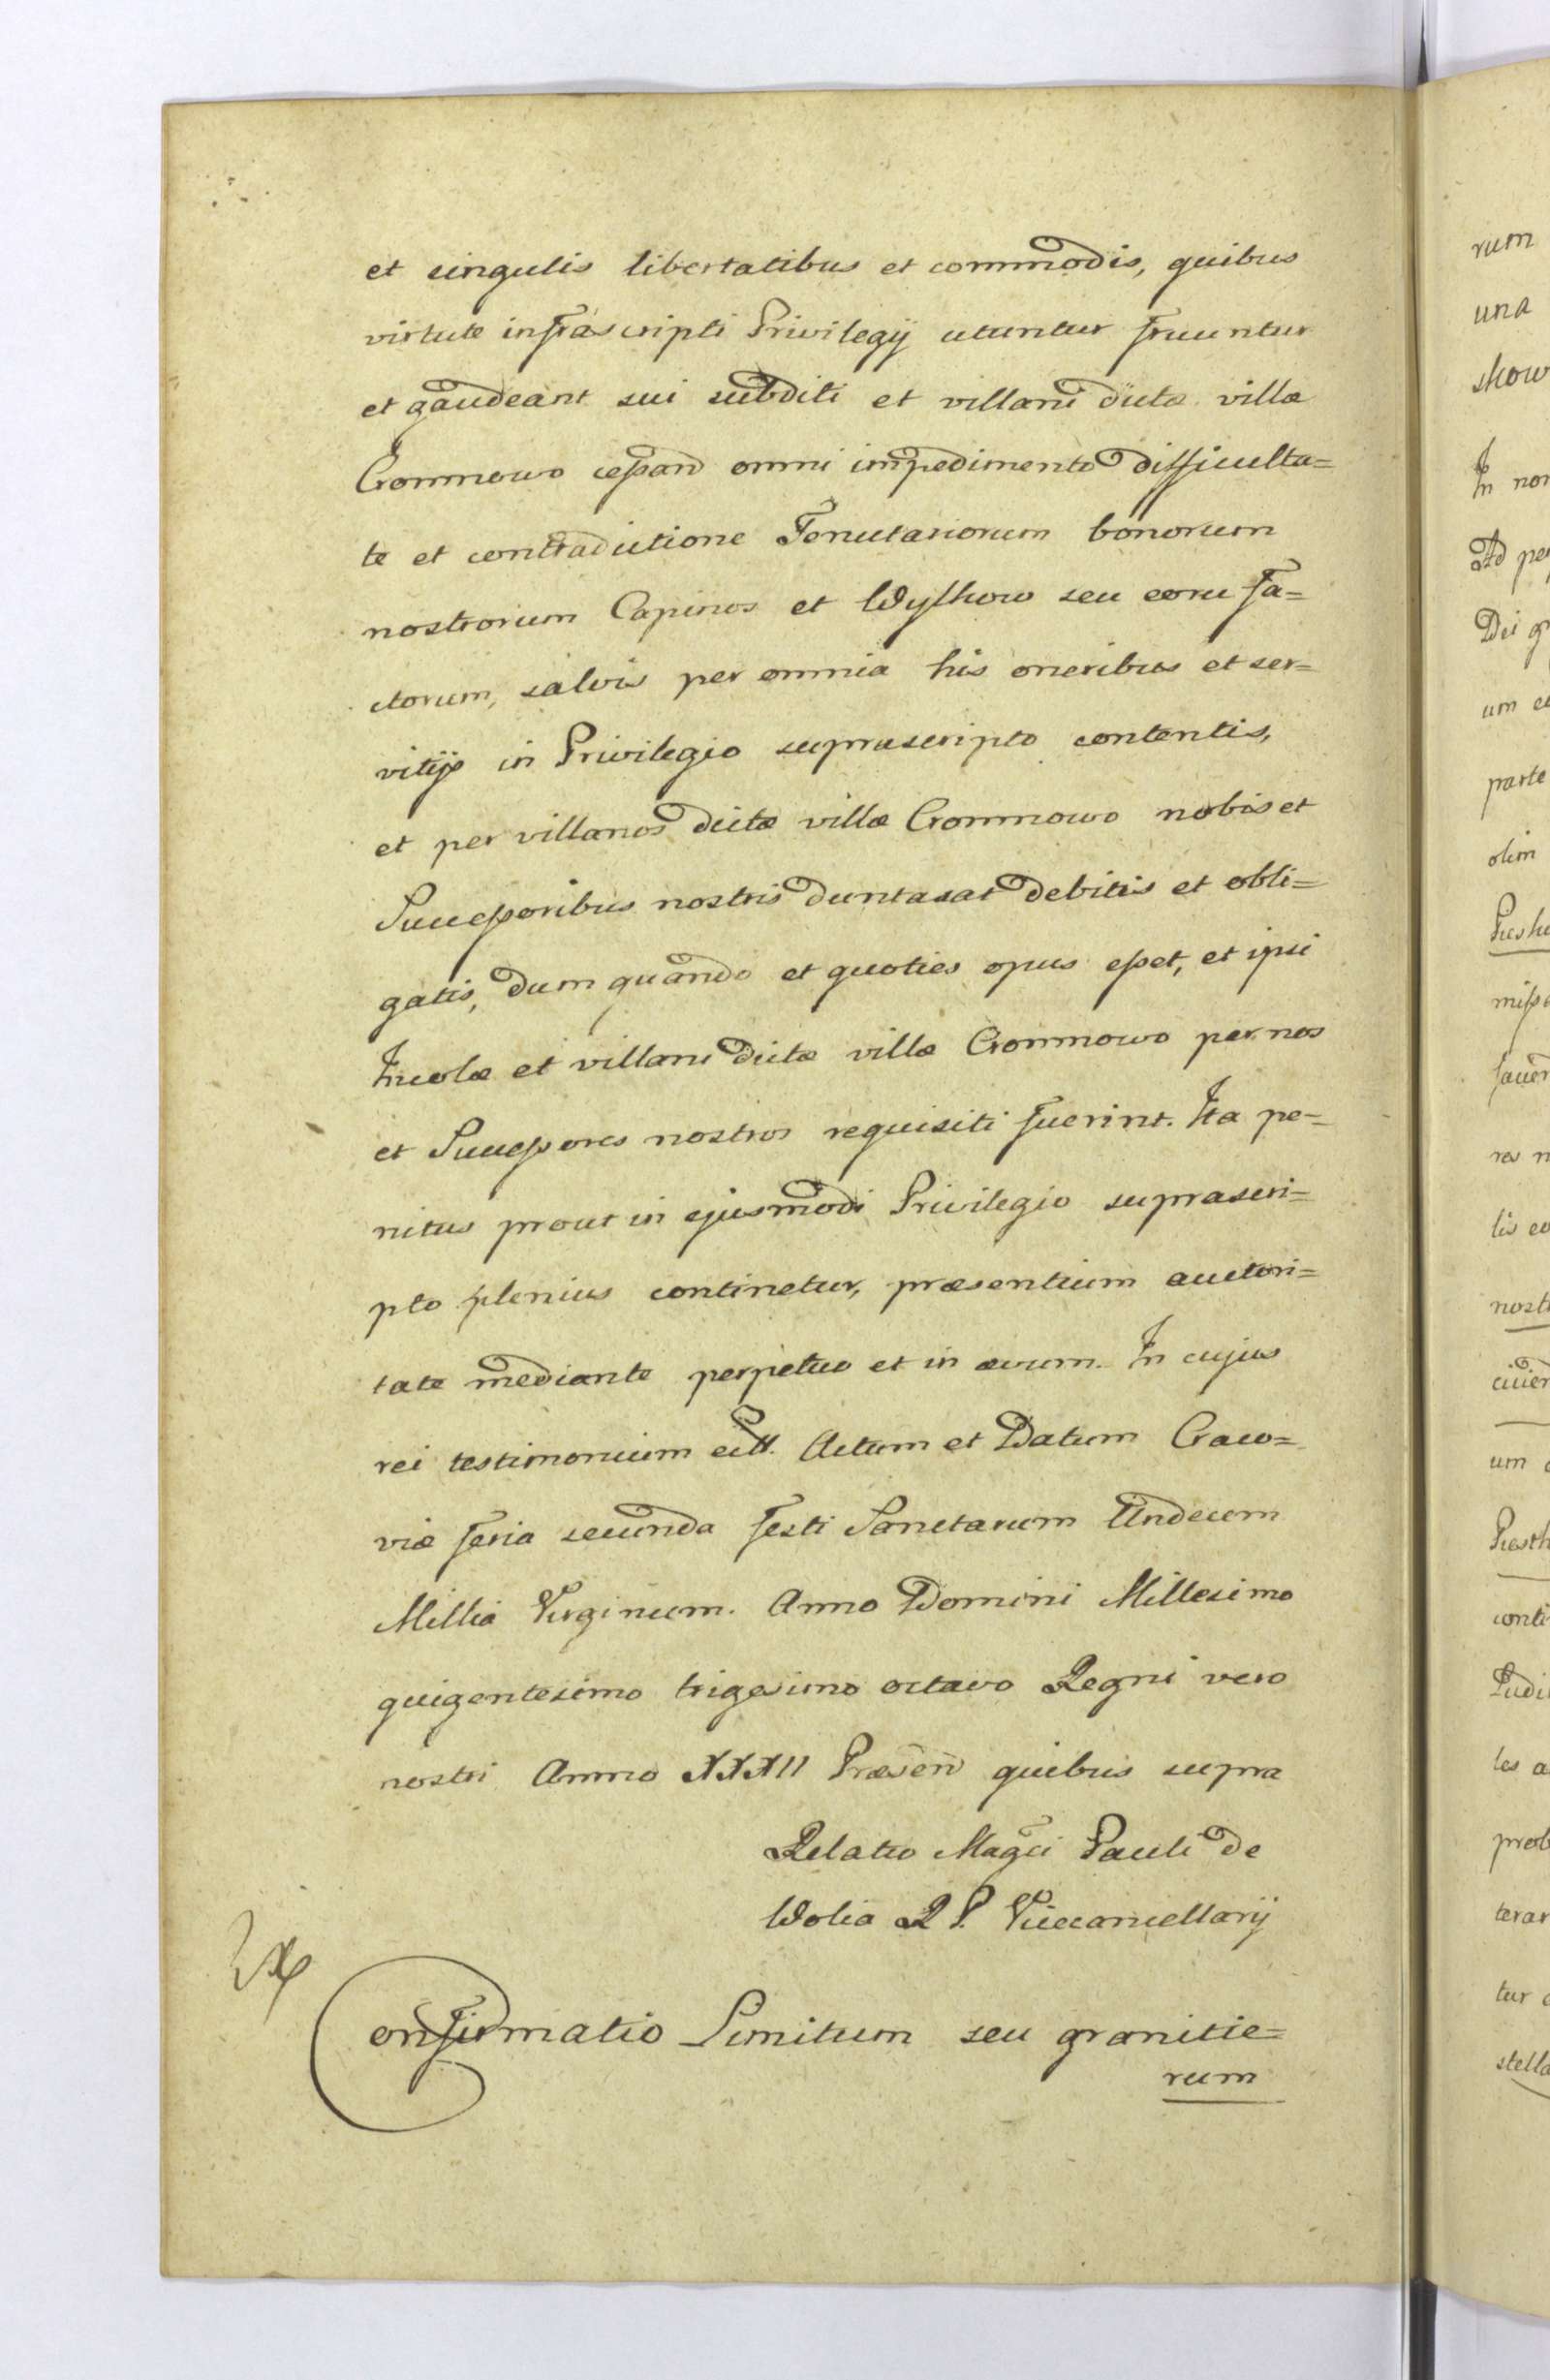 et singulis libertatibus et commodis, quibus
virtute infrascripti Privilegij utuntur fruuntur
et gaudeant sui subditi et villani dictæ villæ
Cronnowo ceßand omni impedimento difficulta=
te et contradictione Tenutariorum bonorum
nostrorum Capinos et Wyschow seu eoru fa=
ctorum, salvis per omnia his oneribus et ser=
vitijs in Privilegio suprascripto contentis,
et per villanos dictæ villæ Cronnowo nobis et
Succeßoribus nostris duntaxat debitis et obli=
gatis, dum quando et quoties opus eßet, et ipsi
Incolæ et villani dictæ villæ Cronnowo per nos
et Succeßores nostros requisiti fuerint. Ita pe=
nitus prout in ejusmodi Privilegio suprascri=
pto plenius continetur, præsentium auctori=
tate mediante perpetuo et in ævum. In cujus
rei testimonium ett. Actum et Datum Craco=
viæ feria secunda festi Sanctarum Undecem
Millia Virginum. Anno Domini Millesimo
quigentesimo trigesimo octavo Regni vero
nostri Anno XXXII Præsen quibus supra
Relatio Magci Pauli de
Wolia R P. Vicecancellarij
Confirmatio Limitum seu granitie=
rum
rum
una
In non
Ad per
Dei gr
um
parte
olim
nost
um
conti
les a
prob
terar
tur
stella